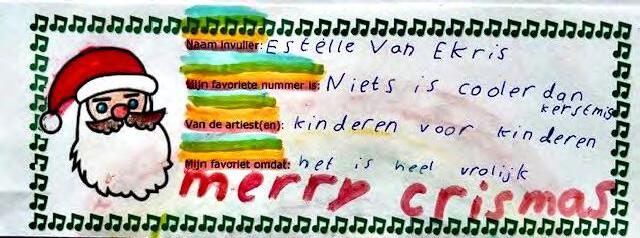 Naam invuller: Estèlle Van Ekris
Mijn favoriete nummer is: Niets is cooler dan
kerstmis
Van de artiest(en): kinderen voor kinderen
Mijn favoriet omdat: het is heel vrolijk
merry crismas